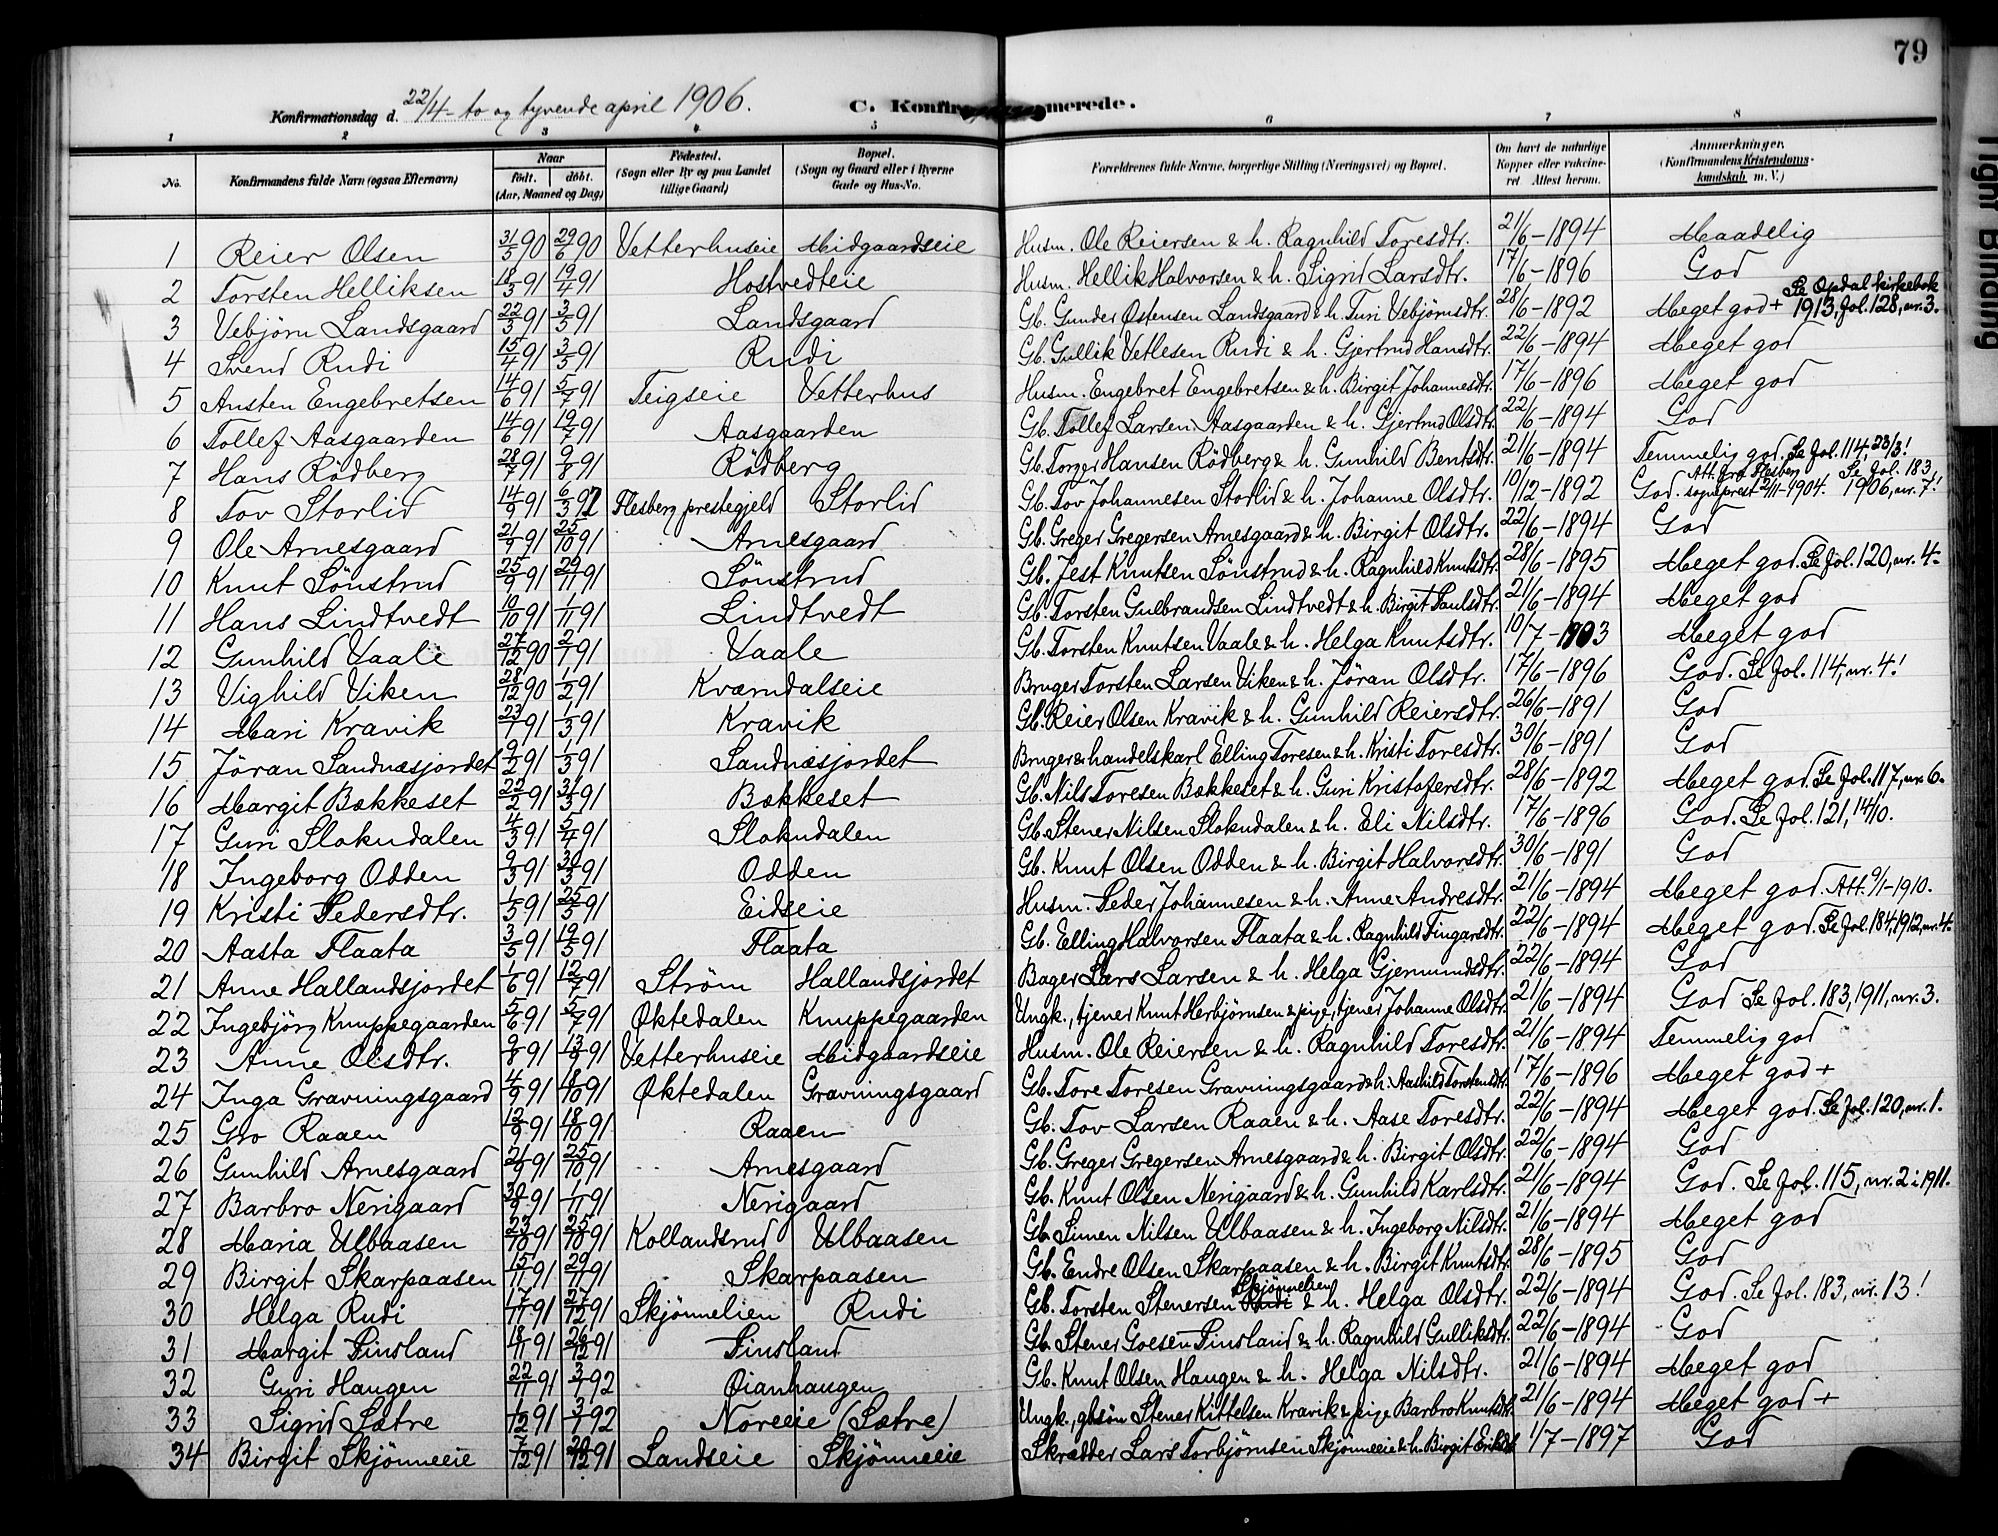 79
Konfirmationsdag d. 22/4 - to og tyvende april 1906. C. Konfirmerede.
1 2 3 4 5 6 7 8
No. Konfirmandens fulde Navn (ogsaa Efternavn) Naar født. døbt. (Aar, Maaned og Dag) Fødested. (Sogn eller By og paa Landet tillige Gaard) Bopæl. (Sogn og Gaard eller i Byerne Gade og Hus-No. Forældrenes fulde Navne, borgerlige Stilling (Næringsvei) og Bopæl. Om havt de naturlige Kopper eller vakcineret. Attest herom. Anmærkninger. (Konfirmandens Kristendomskundskab m. V.)
1 Reier Olsen 31/5 90 29/6 90 Vetterhuseie Midgaardseie Husm. Ole Reiersen & h. Ragnhild Toresdtr. 21/6-1894 Maadelig
2 Torsten Helliksen 18/3 91 19/4 91 Hostvedteie Husm. Hellik Halvorsen & h. Sigrid Larsdtr. 17/6-1896 God
3 Vebjørn Landsgaard 22/3 91 3/5 91 Landsgaard Gb. Gunder Ostensen Landsgaard & h. Turi Vebjørnsdtr. 28/6-1892 Meget god + Se Opdal kirkebok 1913, fol. 128, nr. 3.
4 Svend Rudi 15/4 91 3/5 91 Rudi Gb. Gullik Vetlesen Rudi & h. Gjertrud Hansdtr. 22/6-1894 Meget god
5 Ansten Engebretsen 14/6 91 5/7 91 Teigseie Vetterhus Husm. Engebret Engebretsen & h. Birgit Johannesdtr. 17/6-1896 Meget god
6 Tollef Aasgaarden 14/6 91 19/7 91 Aasgaarden Gb. Tollef Larsen Aasgaarden & h. Gjertrud Olsdtr. 22/6-1894 God
7 Hans Rödberg 28/7 91 9/8 91 Rödberg Gb. Torger Hansen Rödberg & h. Gunhild Bentsdtr. 21/6-1894 Temmelig god. Se fol. 114, 23/3!
8 Tov Storlid 14/9 91 6/3 92 Flesberg prestegjeld Storlid Gb. Tov Johannesen Storlid & h. Johanne Olsdtr. 10/12-1892 God. Att. fra Flesberg sogneprest 12/11-1904. Se fol. 183, 1906, nr. 7!
9 Ole Arnesgaard 21/9 91 25/10 91 Arnesgaard Gb. Greger Gregersen Arnesgaard & h. Birgit Olsdtr. 22/6-1894 God
10 Knut Sönstrud 25/9 91 29/11 91 Sönstrud Gb. Jest Knutsen Sönstrud & h. Ragnhild Knutsdtr. 28/6-1895 Meget god. Se fol. 120, nr. 4.
11 Hans Lindtvedt 9/10 91 1/11 91 Lindtvedt Gb. Torsten Gulbrandsen Lindtvedt & h. Birgit Paulsdtr. 21/6-1894 Meget god
12 Gunhild Vaale 27/12 90 2/1 91 Vaale Gb. Torsten Knutsen Vaale & h. Helga Knutsdtr. 10/7-1903 Meget god
13 Vighild Viken 28/12 90 1/2 91 Kværndalseie Bruger Torsten Larsen Viken & h. Jöran Olsdtr. 17/6-1896 God. Se fol. 114, nr. 4!
14 Mari Kravik 23/1 91 1/3 91 Kravik Gb. Reier Olsen Kravik & h. Gunhild Reiersdtr. 26/6-1891 God
15 Jöran Sandnæsjordet 9/2 91 1/3 91 Sandnæsjordet Bruger & handelskarl Elling Toresen & h. Kristi Toresdtr. 30/6-1891 God
16 Margit Bækkeset 22/2 91 31/3 91 Bækkeset Gb. Nils Toresen Bækkeset & h. Guri Kristofersdtr. 28/6-1892 Meget god. Se fol. 117, nr. 6.
17 Guri Slokndalen 4/3 91 5/4 91 Slokndalen Gb. Stener Nilsen Slokndalen & h. Eli Nilsdtr. 17/6-1896 God. Se fol. 121, 14/10.
18 Ingeborg Odden 9/3 91 31/3 91 Odden Gb. Knut Olsen Odden & h. Birgit Halvorsdtr. 30/6-1891 God
19 Kristi Pedersdtr. 1/5 91 25/5 91 Eidseie Husm. Peder Johannesen & h. Anne Andresdtr. 21/6-1894 Meget god. Att. 9/1-1910.
20 Aasta Flaata 3/5 91 19/5 91 Flaata Gb. Elling Halvorsen Flaata & h. Ragnhild Fingarsdtr. 22/6-1894 Meget god. Se fol. 184, 1912, nr. 4.
21 Anne Hallandsjordet 1/6 91 12/7 91 Strøm Hallandsjordet Bager Lars Larsen & h. Helga Gjermundsdtr. 22/6-1894 God
22 Ingebjörg Knuppegaarden 5/6 91 5/7 91 Øktedalen Knuppegaarden Ungk., tjener Knut Herbjørnsen & pige, tjener Johanne Olsdtr. 21/6-1894 God Se fol. 183, 1911, nr. 3.
23 Anne Olsdtr. 9/8 91 13/9 91 Vetterhuseie Midgaardseie Husm. Ole Reiersen & h. Ragnhild Toresdtr. 21/6-1894 Temmelig god
24 Inga Gravningsgaard 4/9 91 18/10 91 Øktedalen Gravningsgaard Gb. Tore Toresen Gravningsgaard & h. Aashild Torstensdtr. 17/6-1896 Meget god +
25 Gro Raaen 12/9 91 18/10 91 Raaen Gb. Tov Larsen Raaen & h. Aase Toresdtr. 22/6-1894 Meget god. Se fol. 120, nr. 1.
26 Gunhild Arnesgaard 21/9 91 25/10 91 Arnesgaard Gb. Greger Gregersen Arnesgaard & h. Birgit Olsdtr. 22/6-1894 God
27 Barbro Nerigaard 30/9 91 1/11 91 Nerigaard Gb. Knut Olsen Nerigaard & h. Gunhild Karlsdtr. 21/6-1894 God. Se fol. 115, nr. 2 i 1911.
28 Maria Ulbaasen 23/10 91 25/10 91 Kollandsrud Ulbaasen Gb. Simen Nilsen Ulbaasen & h. Ingeborg Nilsdtr. 21/6-1894 Meget god
29 Birgit Skarpaasen 15/11 91 29/11 91 Skarpaasen Gb. Endre Olsen Skarpaasen & h. Birgit Knutsdtr. 28/6-1895 God
30 Helga Rudi 17/11 91 27/12 91 Skjönnelien Rudi Gb. Torsten Stenersen Rudi Skjönnelien & h. Helga Olsdtr. 22/6-1894 God. Se fol. 183, nr. 13!
31 Margit Finsland 18/11 91 26/12 91 Finsland Gb. Stener Goesen Finsland & h. Ragnhild Gulliksdtr. 22/6-1894 God
32 Guri Haugen 22/11 91 3/1 92 Øianhaugen Gb. Knut Olsen Haugen & h. Helga Nilsdtr. 21/6-1894 Meget god
33 Sigrid Sætre 1/12 91 3/1 92 Noreeie (Sætre) Ungk., gbsøn Stener Kittelsen Kravik & pige Barbro Knutsdtr. 21/6-1894 Meget god +
34 Birgit Skjönneeie 7/12 91 91 Landseie Skjönneeie Skrædder Lars Torbjørnsen Skjönneeie & h. Birgit Eriksdtr. 1/7-1897 God
Tight Binding